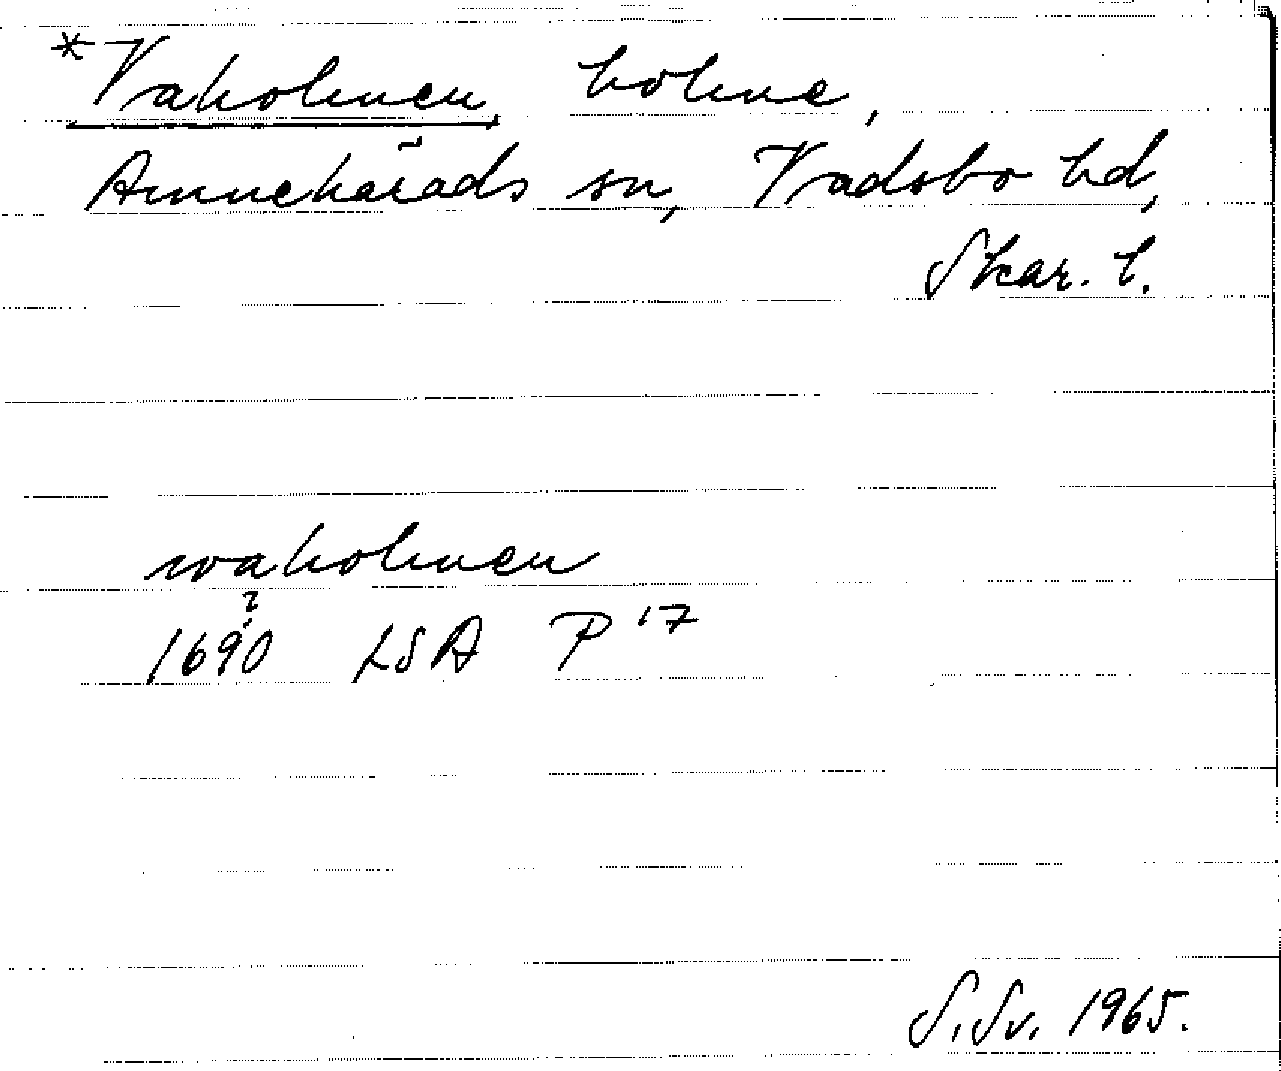 *Vaholmen, holme,
Amnehärads sn, Vadsbo hd,
Skar. l.
waholmen
?
1690 LSA P 17
S.Sv. 1965.